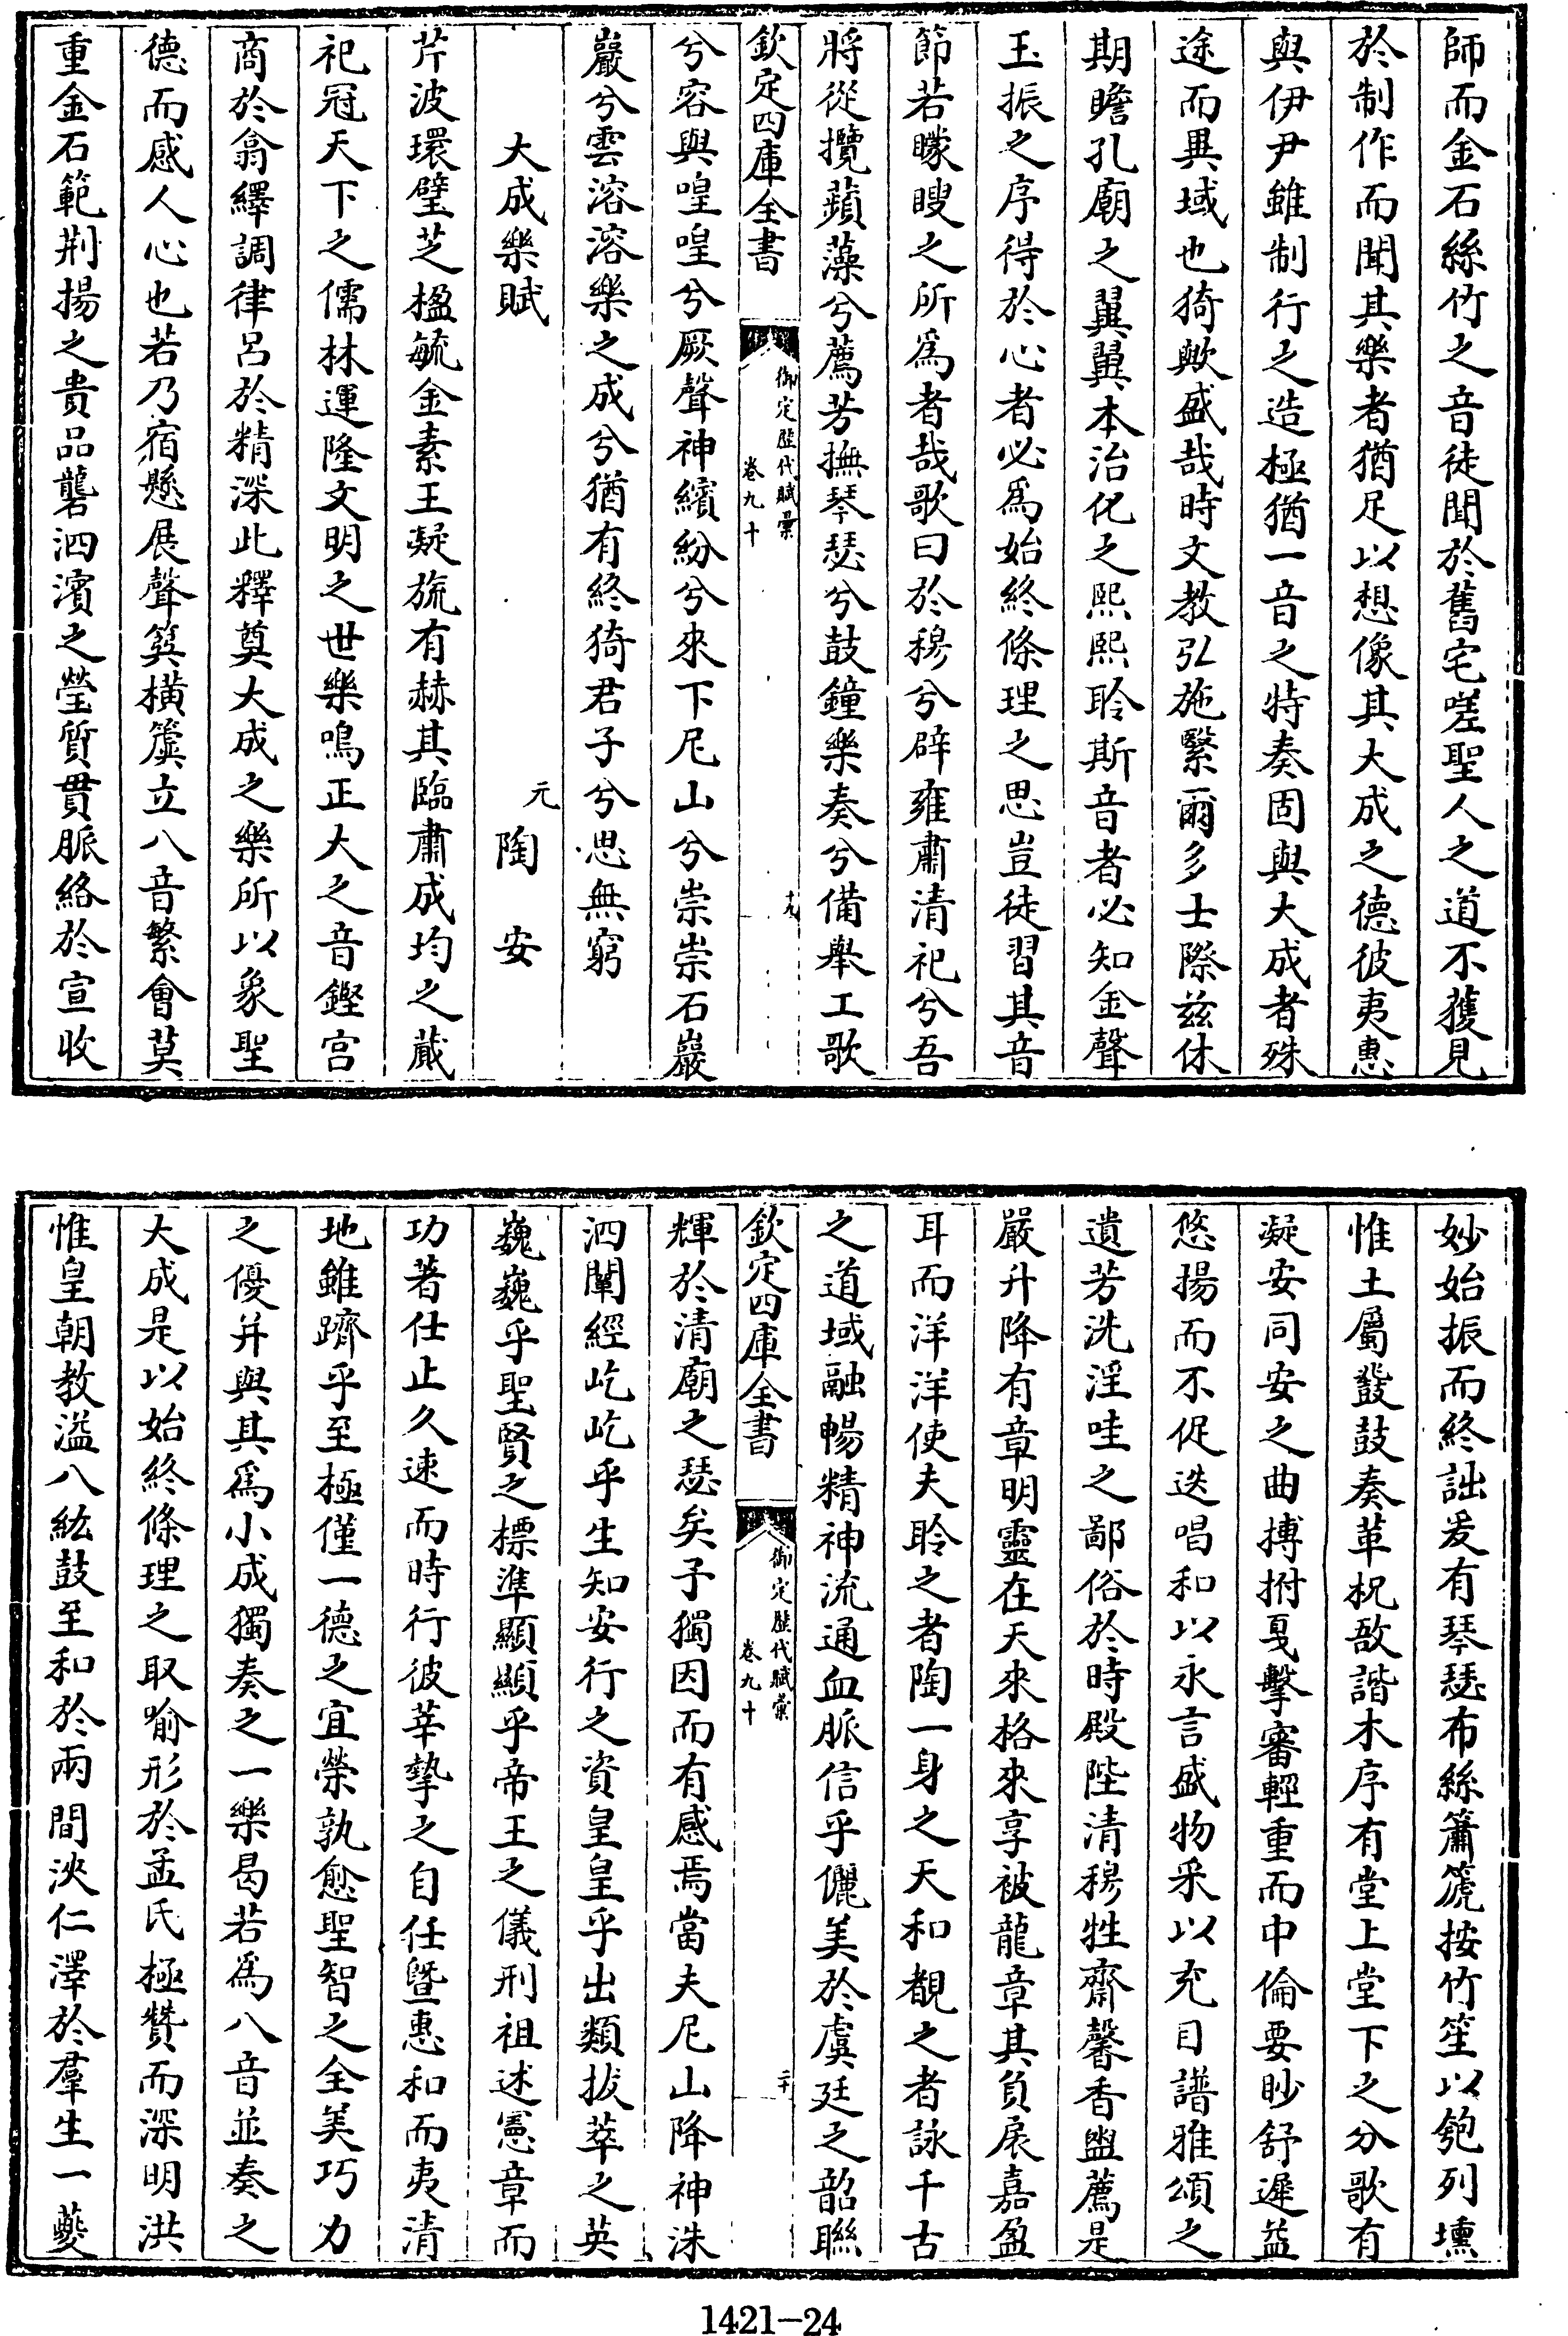 師而金石絲竹之音徒聞於舊宅嗟聖人之道不獲見
於制作而聞其樂者猶足以想像其大成之德彼夷惠
與伊尹雖制行之造極猶一音之特奏固與大成者殊
途而異域也猗歟盛哉時文教弘施繄爾多士際兹休
期瞻孔廟之翼翼本治化之熙熙聆斯音者必知金聲
玉振之序得於心者必爲始終條理之思豈徒習其音
節若矇瞍之所爲者哉歌曰於穆兮辟雍肅清祀兮吾
將從攬蘋藻兮薦芳撫琴瑟兮鼓鐘樂奏兮備舉工歌
欽定四庫全書
御定歷代賦彙
卷九十
十九
兮容與喤喤兮厥聲神繽紛兮來下尼山兮崇崇石巖
巖兮雲溶溶樂之成兮猶有終猗君子兮思無窮
大成樂賦
元陶安
芹波環璧芝楹毓金素王凝旒有赫其臨肅成均之蕆
祀冠天下之儒林運隆文明之世樂鳴正大之音鏗宫
商於翕繹調律呂於精深此釋奠大成之樂所以象聖
德而感人心也若乃宿懸展聲簨橫簴立八音繁會莫
重金石範荆揚之貴品礱泗濱之瑩質貫脈絡於宣收
妙始振而終詘爰有琴瑟布絲簫篪按竹笙以匏列壎
惟土屬鼗鼓奏革柷敔諧木序有堂上堂下之分歌有
凝安同安之曲搏拊戛擊審輕重而中倫要眇舒遲益
悠揚而不促迭唱和以永言盛物采以充目譜雅頌之
遺芳洗淫哇之鄙俗於時殿陛清穆牲齋馨香盥薦是
嚴升降有章明靈在天來格來享被龍章其負扆嘉盈
耳而洋洋使夫聆之者陶一身之天和覩之者詠千古
之道域融暢精神流通血脈信乎儷美於虞廷之韶聯
欽定四庫全書
御定歷代賦彙
卷九十
二十
輝於清廟之瑟矣予獨因而有感焉當夫尼山降神洙
泗闡經屹屹乎生知安行之資皇皇乎出類拔萃之英
巍巍乎聖賢之標準顯顯乎帝王之儀刑祖述憲章而
功著仕止久速而時行彼莘摯之自任曁惠和而夷清
地雖躋乎至極僅一德之宜榮孰愈聖智之全美巧力
之優并與其爲小成獨奏之一樂曷若爲八音並奏之
大成是以始終條理之取喻形於孟氏極贊而深明洪
惟皇朝教溢八紘鼓至和於兩間浹仁澤於羣生一夔
1421-24